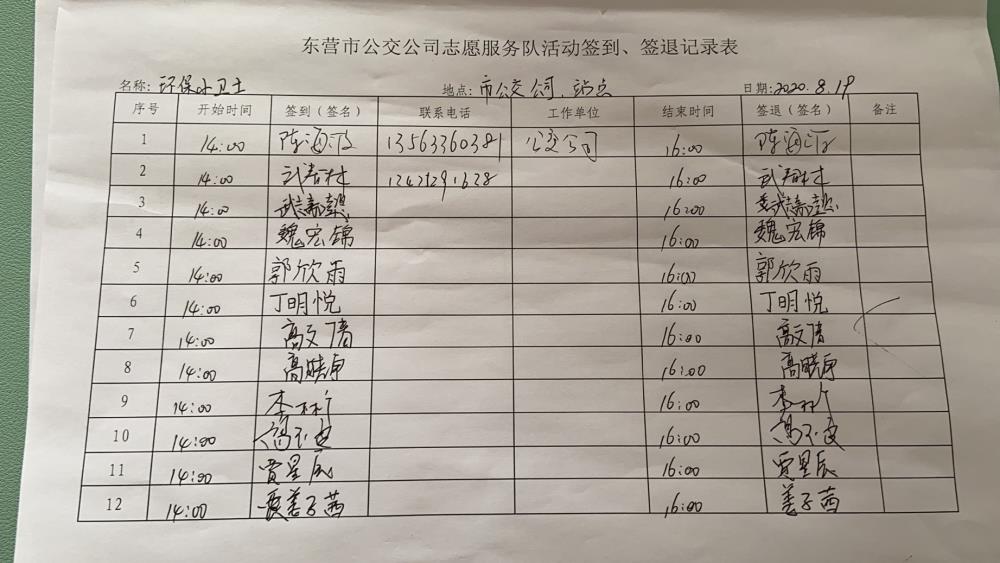 东营市公交公司志愿服务队活动签到、签退记录表
名称:环保小卫士 地点:市公交公司、站点 日期:2020.8.19
序号 开始时间 签到（签名） 联系电话 工作单位 结束时间 签退（签名） 备注
1 14:00 陈海 13563360381 公交公司 16:00 陈海
2 14:00 武 16:00 武
3 14:00 武 16:00 武
4 14:00 魏宏锦 16:00 魏宏锦
5 14:00 郭欣雨 16:00 郭欣雨
6 14:00 丁明悦 16:00 丁明悦
7 14:00 高文倩 16:00 高文倩
8 14:00 高晓 16:00 高晓
9 14:00 李 16:00 李
10 14:00 16:00
11 14:00 贾星辰 16:00 贾星辰
12 14:00 姜子茜 16:00 姜子茜